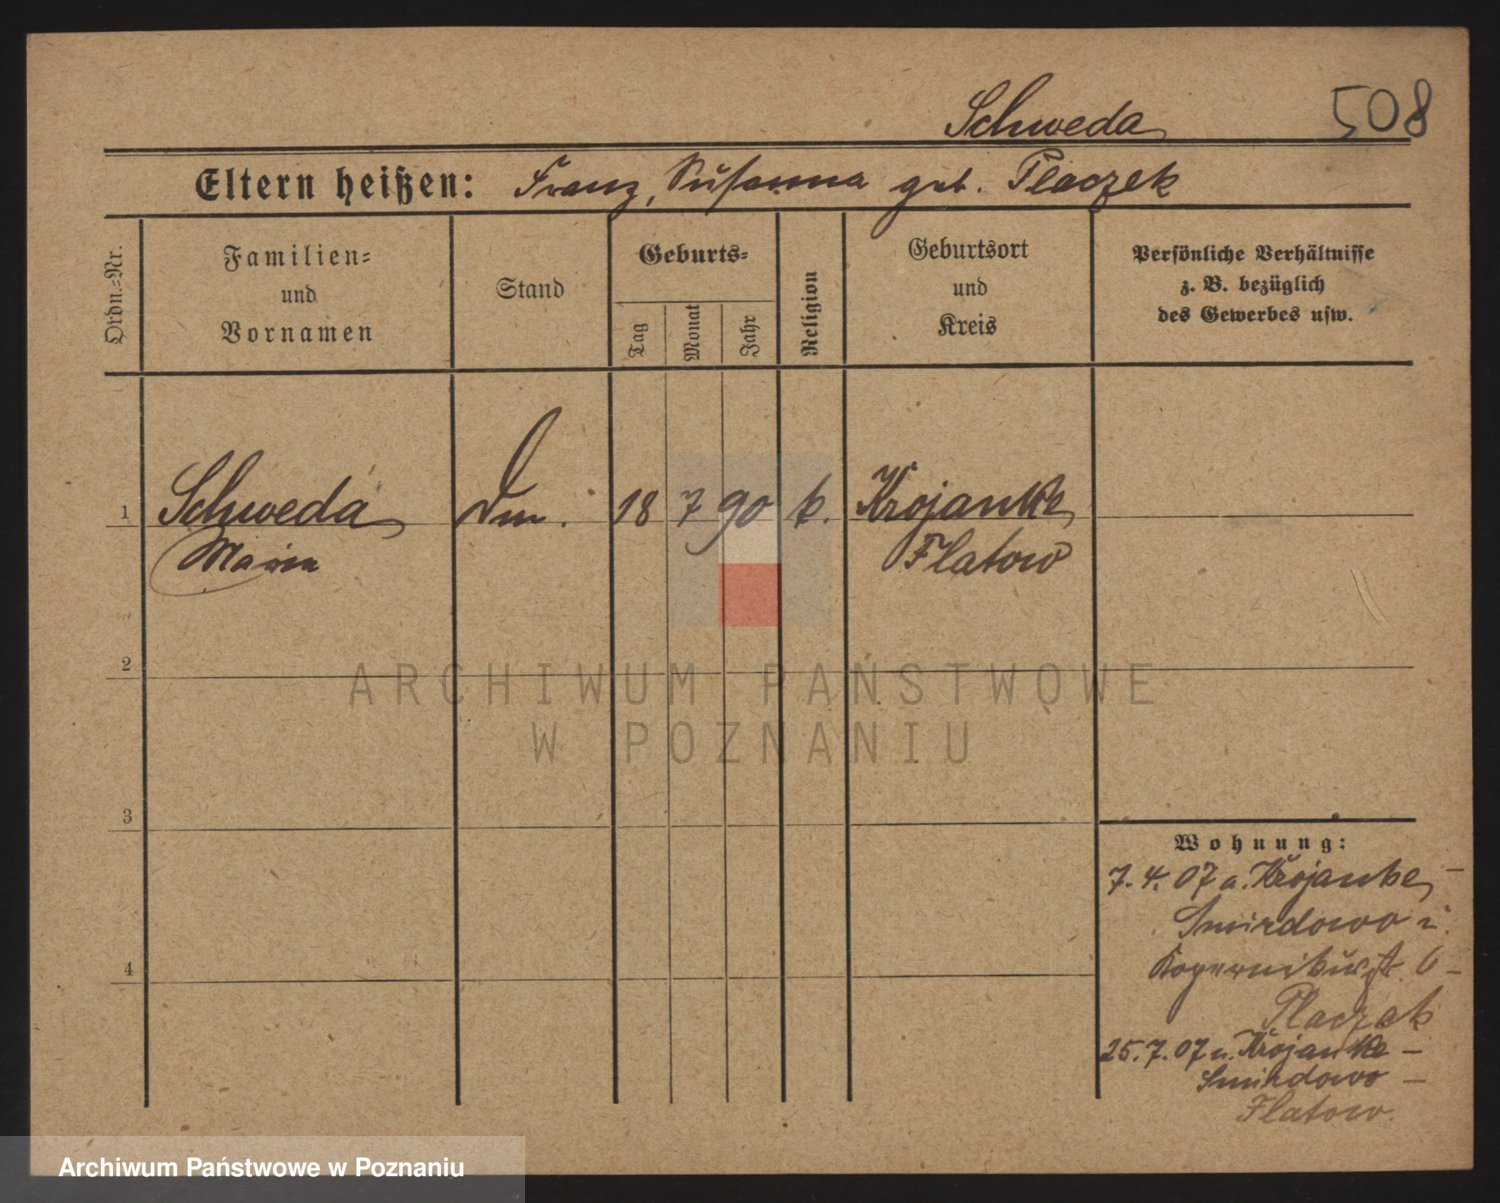 Schweda 508
Eltern heißen: Franz, Susanna geb. Placzek
Ordn.-Nr.
Familien-
und
Vornamen
Stand
Geburts-
Tag
Monat
Jahr
Religion
Geburtsort
und
Kreis
Persönliche Verhältnisse
z. B. bezüglich
des Gewerbes usw.
1 Schweda 18 7 90 k. Krojanke
Maria Flatow
2
3
4
Wohnung:
7. 4. 07 a. Krojanke,
Smirdowo i.
Kopernikusstr 6 -
Placzek
25. 7. 07 n. Krojanke -
Smirdowo -
Flatow.
ARCHIWUM PAŃSTWOWE
W POZNANIU
Archiwum Państwowe w Poznaniu